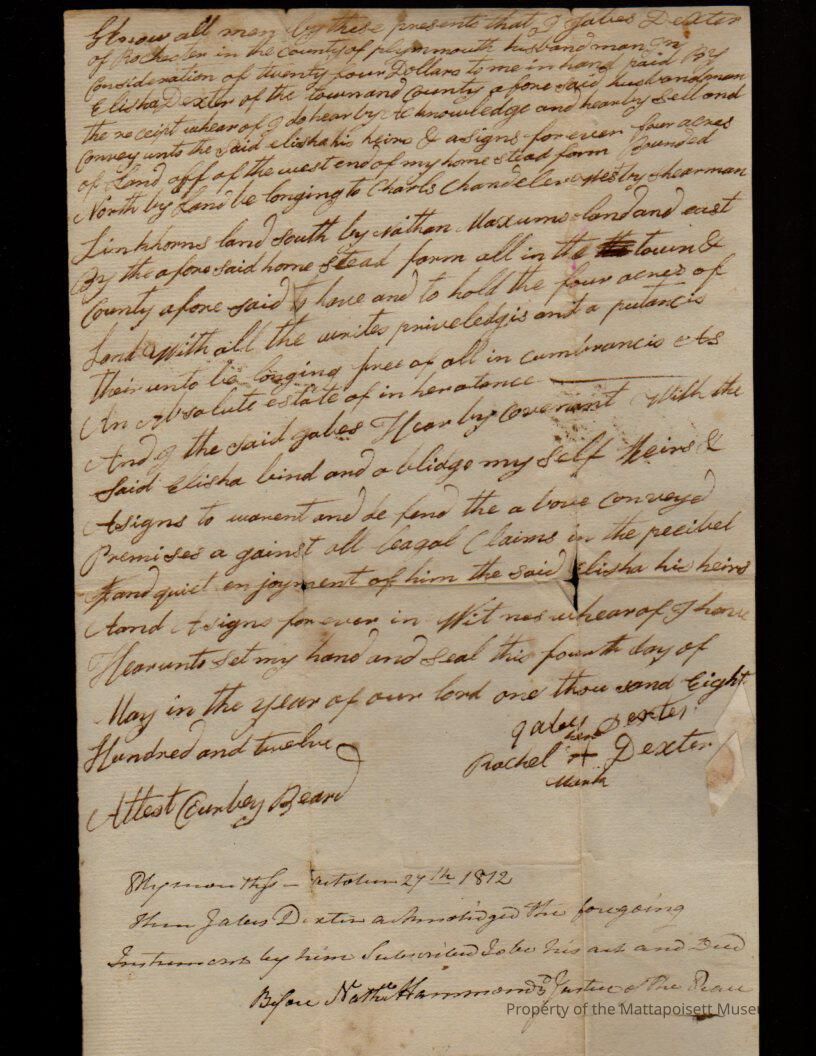 Know all men by these presents that I Jabes Dexter
of Rochester in the County of plymmouth husband man in
Consideration of twenty four Dollars to me in hand paid By
Elisha Dexter of the town and County afore said husbandman
the receipt whear of I do hear by acknowledge and hearby sell and
Convey unto the said elisha his heirs & asigns for ever four acres
of Land off of the west end of my home stead farm bounded
North by Land be longing to Charls Chandeler west by shearman
Linkhorns land south by Nathan Maxums land and east
By the afore said home stead farm all in the town &
County afore said to have and to hold the four acres of
Land With all the writes priveledgis and a putancis
their unto be longing free of all in cumbrancis As
An absolute estate of in heratance
And I the said Jabes Hear by Covenant With the
Said Elisha bind and a blidge my self heirs &
Asigns to warent and de fend the a bove Conveyed
Premises a gainst all leagal Claims in the pecibel
and quiet en joyment of him the said Elisha his heirs
Aand Asigns for ever in Wit nes whear of I have
Hearunto set my hand and seal this fourth day of
May in the year of our lord one thou sand Eight
Hundred and twelve
Jabes Dexter
her
Rachel + Dexter
Mark
Attest Courbey Beard
Plymouth ss October 27th 1812
then Jabes Dexter acknowledged the foregoing
Instrument by him Subscribed to be his act and Deed
Before Nathl Hammond Justice of the Peace
Property of the Mattapoisett Museu